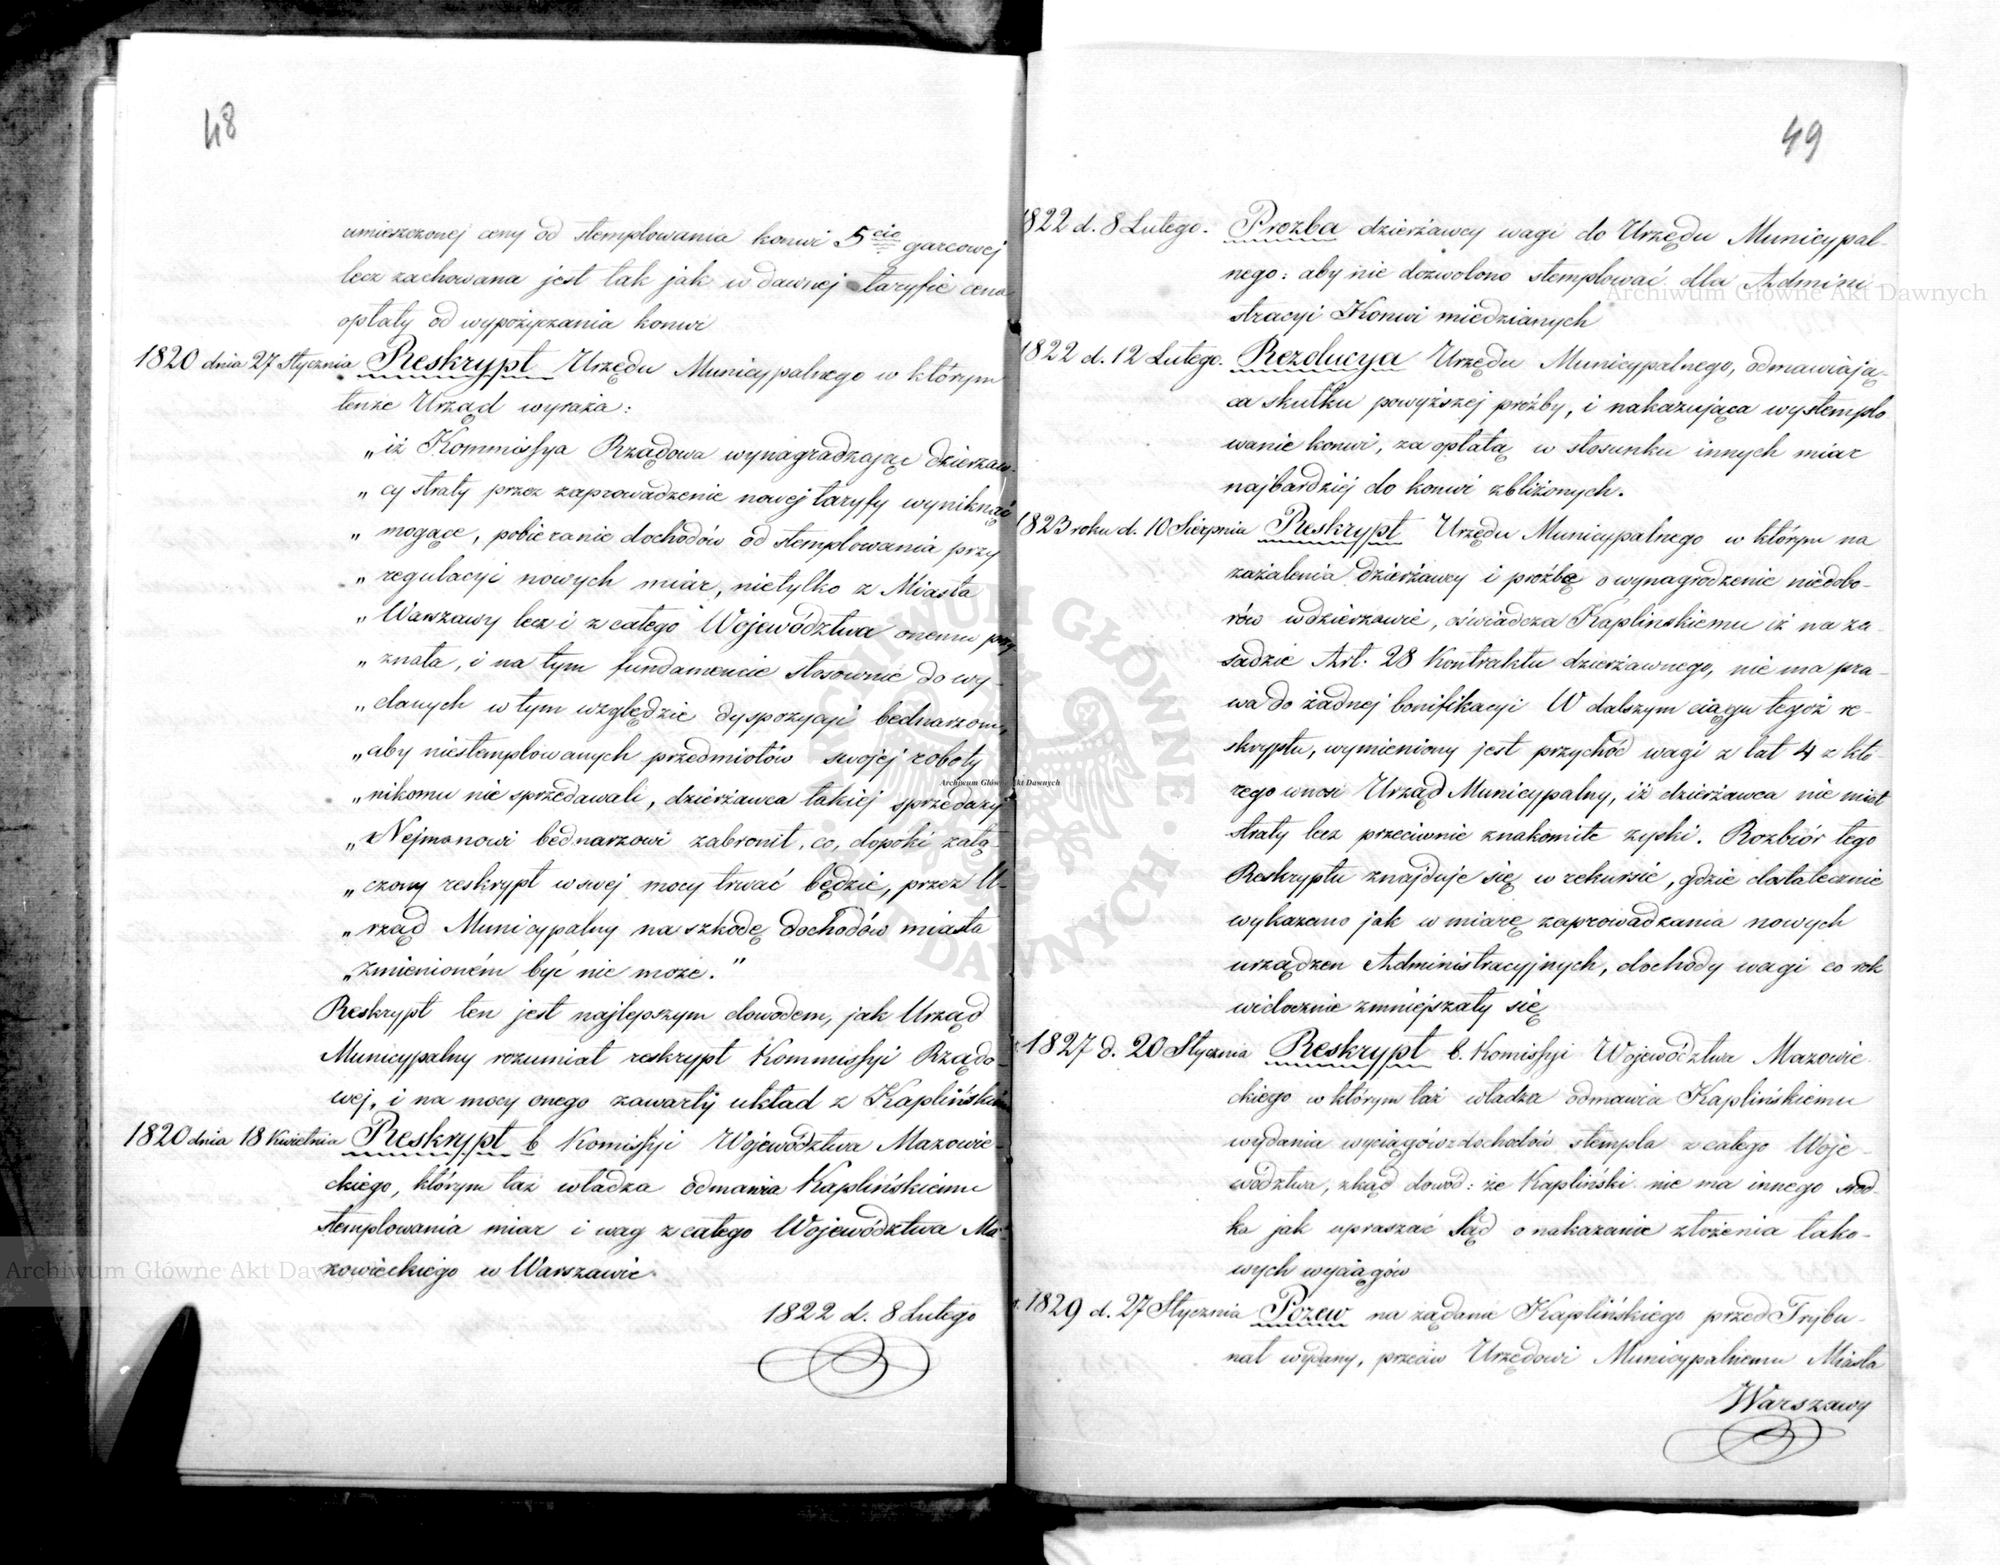 48
umieszczonej ceny od stemplowania konwi 5cio garcowej
lecz zachowana jest tak jak w dawnej taryfie cena
opłaty od wypożyczania konwi
1820 dnia 27 Stycznia Reskrypt Urzędu Municypalnego w którym
tenże Urząd wyraża:
„ iż Kommissya Rządowa wynagradzając dzierżaw-
„ cy straty przez zaprowadzenie nowej taryfy wyniknąć
„ mogące, pobieranie dochodów od stemplowania przy
„ regulacyi nowych miar, nietylko z Miasta
„ Warszawy lecz i z całego Województwa onemu przy
„ znała, i na tym fundamencie stosownie do wy-
„ danych w tym względzie dyspozycyi bednarzom,
„ aby niestemplowanych przedmiotów swojej roboty
„ nikomu nie sprzedawali, dzierżawca takiej sprzedaży
„ Nejmanowi bednarzowi zabronił, co, dopóki załą-
„ czony reskrypt w swej mocy trwać będzie, przez U-
„ rząd Municypalny na szkodę dochodów miasta
„ zmienioném być nie może.”
Reskrypt ten jest najlepszym dowodem, jak Urząd
Municypalny rozumiał reskrypt Kommissyi Rządo-
wej, i na mocy onego zawarty układ z Kaplińskim
1820 dnia 18 Kwietnia Reskrypt b Komissyi Województwa Mazowie-
ckiego, którym taż władza odmawia Kaplińskiemu
stemplowania miar i wag z całego Województwa Ma-
zowieckiego w Warszawie.
1822 d. 8 Lutego
49
1822 d. 8 Lutego. Prozba dzierżawcy wagi do Urzędu Municypal-
nego: aby nie dozwolono stemplować dla Admini
stracyi Konwi miedzianych
1822 d. 12 Lutego. Rezolucya Urzędu Municypalnego, odmawiają-
ca skutku powyższej prośby, i nakazująca wystemplo
wanie konwi, za opłatą w stosunku innych miar
najbardziej do konwi zbliżonych.
1823 roku d. 10 Sierpnia Reskrypt Urzędu Municypalnego w którym na
zażalenia dzierżawcy i proźbę o wynagrodzenie niedobo-
rów w dzierżawie, oświadcza Kaplinskiemu iż na za-
sadzie Art. 28 Kontraktu dzierżawnego, nie ma pra-
wa do żadnej bonifikacyi W dalszym ciągu tegoż re-
skryptu, wymieniony jest przychód wagi z lat 4 z któ-
rego wnosi Urząd Municypalny, iż dzierżawca nie miał
straty lecz przeciwnie znakomite zyski. Rozbiór tego
Reskryptu znajduje się w rekursie, gdzie dostatecznie
wykazano jak w miarę zaprowadzania nowych
urządzen Administracyjnych, dochody wagi co rok
widocznie zmniejszały się
1827 d. 20 Stycznia Reskrypt b. Komissyi Województwa Mazowie
ckiego w którym taż władza odmawia Kaplińskiemu
wydania wyciągów z dochodów stempla z całego Woje-
wództwa, zkąd dowód: że Kapliński nie ma innego środ-
ka jak upraszać Sąd o nakazanie złożenia tako-
wych wyciągów
r. 1829 d. 27 Stycznia Pozew na żądanie Kaplińskiego przed Trybu-
nał wydany, przeciw Urzędowi Municypalnemu Miasta
Warszawy
Archiwum Główne Akt Dawnych
Archiwum Główne Akt Dawnych
Archiwum Główne Akt Dawnych
ARCHIWUM GŁÓWNE AKT DAWNYCH